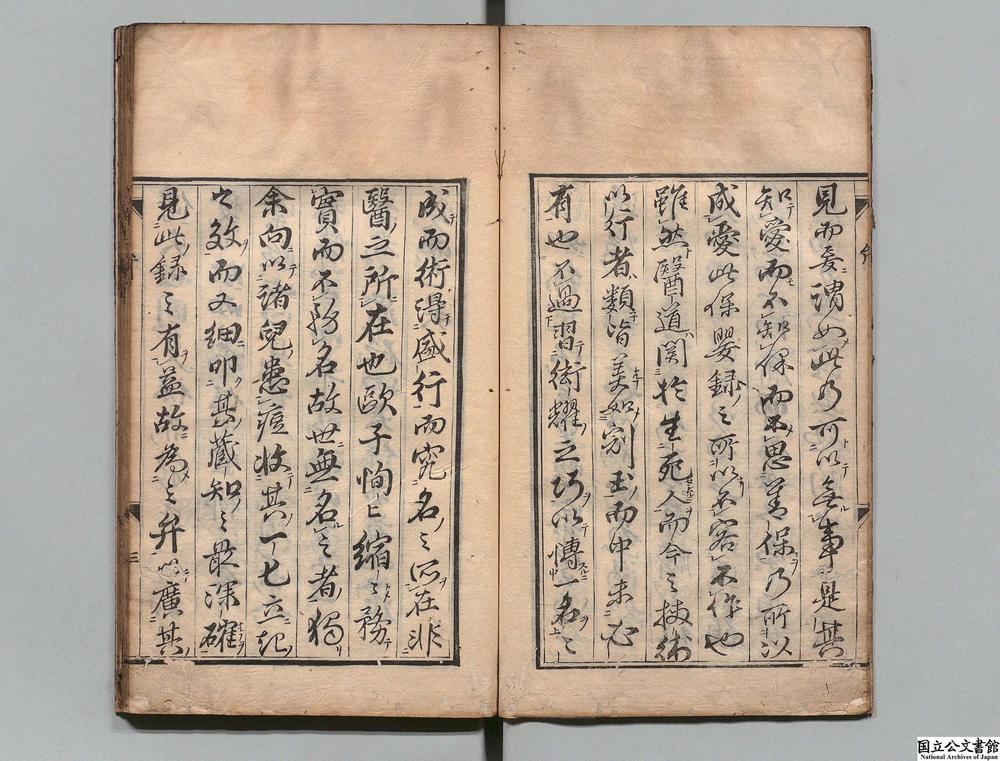 見而妄謂如此乃可以無事是其
知愛而不知保而不思善保乃所以
成愛此保嬰録之所以不容不作也
雖然醫道関於生死人而今之挟術
以行者類皆美如剖玉而中未必
有也不過習術耀之巧以博一名之
成而術得盛行而究名之所在非
醫之所在也歐子恂〻縮〻務
實而不務名故世無名之者獨
余向以諸兒患痘收其一七立起
之效而又細叩其蔵知之最深確
見此録之有益故為之弁以廣其
三
国立公文書館
National Archives of Japan